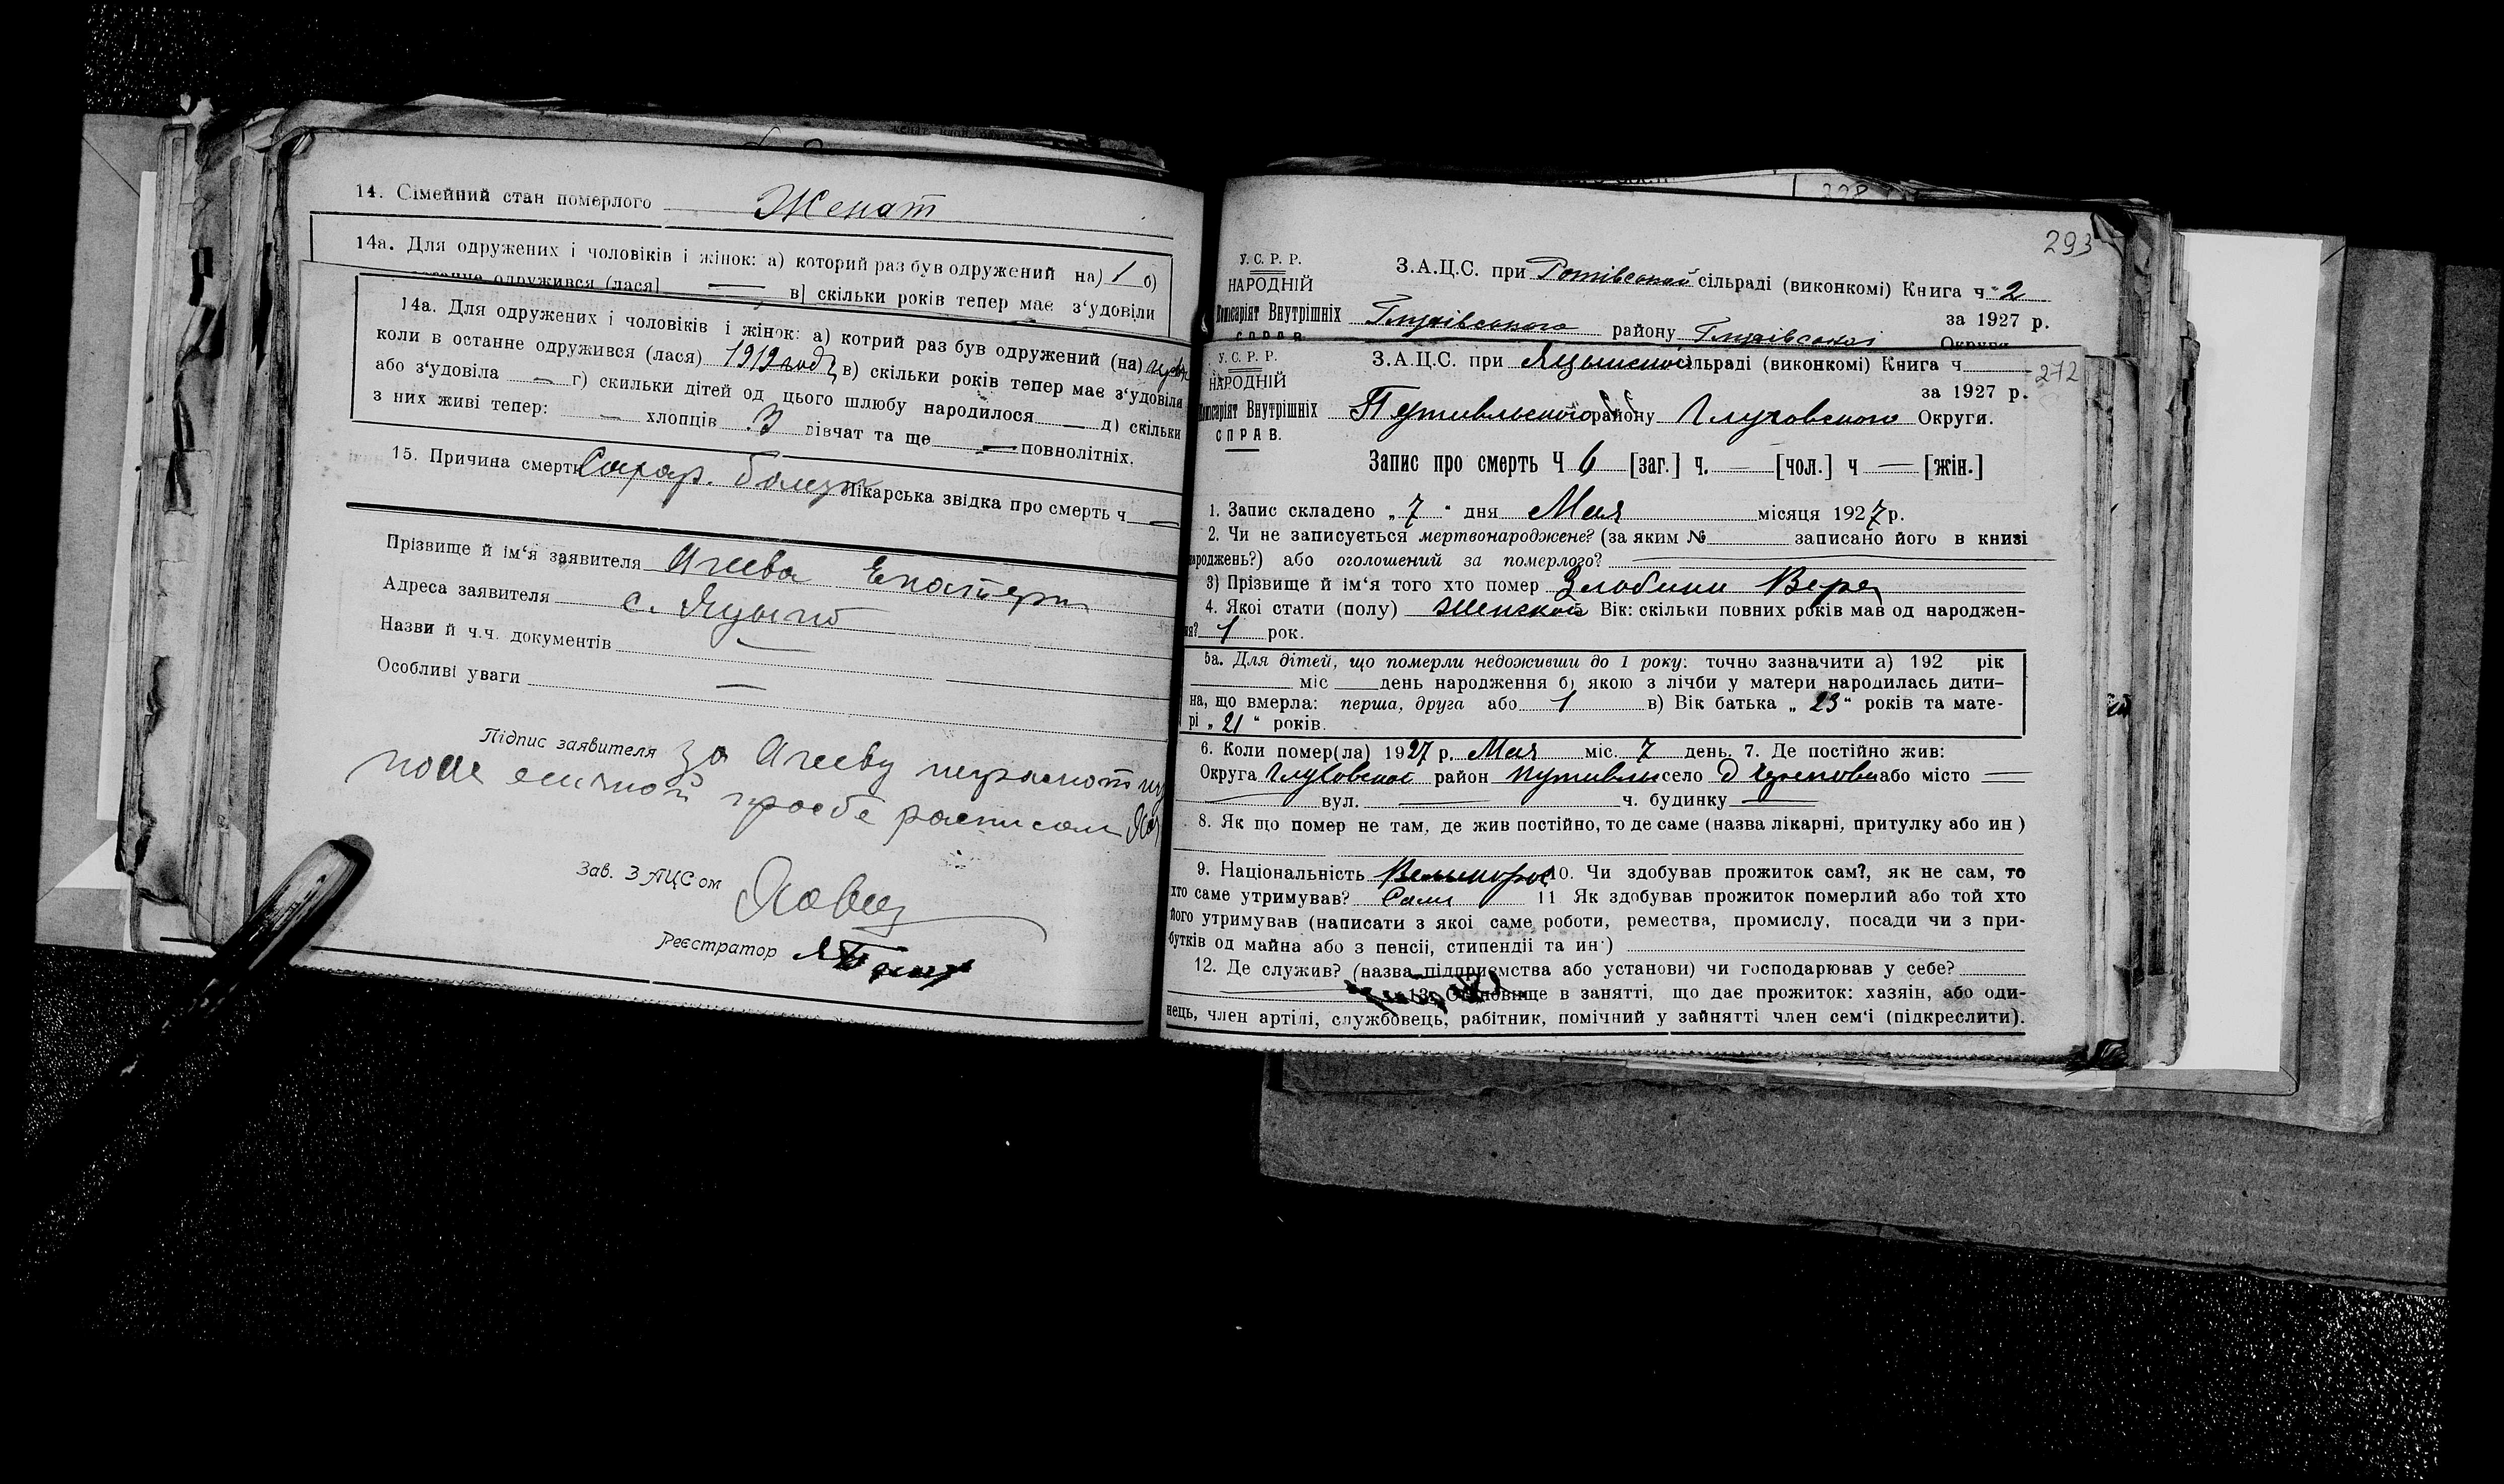 14. Сімейний стан померлого Женат
14а. Для одружених і чоловіків і жінок: а) которий раз був одружений на) 1 б)
останне одружився (лася] — в] скільки років тепер має з‘удовіли
14а. Для одружених і чоловіків і жінок: а) котрий раз був одружений (на)
коли в останне одружився (лася) 1919 год в) скільки років тепер має з‘удовіла
або з‘удовіла — г) скильки дітей од цього шлюбу народилося — д) скільки
з них живі тепер: — хлопців 3 дівчат та ще — повнолітніх.
15. Причина смерти Лікарська звідка про смерть ч —
Прізвище й ім‘я заявителя Агеева Екатери
Адреса заявителя с. Яцыно
Назви й ч.ч. документів —
Особливі уваги —
Підпис заявителя За Агееву неграмотную
по ее личной просбе расписался
Зав. ЗАЦСом
Реєстратор
293
У.С.Р.Р.
НАРОДНІЙ
Комісаріят Внутрішніх
СПРАВ.
З.А.Ц.С. при сільраді (виконкомі) Книга ч 2
за 1927 р.
Глухівського району Глухівської Округи
272
У.С.Р.Р.
НАРОДНІЙ
Комісаріят Внутрішніх
СПРАВ.
З.А.Ц.С. при Яцынской сільраді (виконкомі) Книга ч
за 1927 р.
Путивльского району Глуховского Округи.
Запис про смерть Ч 6 [заг.] ч. — [чол.] ч — [жін.]
1. Запис складено „ 7 “ дня Мая місяця 1927 р.
2. Чи не записується мертвонароджене? (за яким № записано його в книзі
народжень?) або оголошений за померлого?
3) Прізвище й ім‘я того хто помер Злобина Вера
4. Якої стати (полу) женской Вік: скільки повних років мав од народжен-
ня? 1 рок.
5а. Для дітей, що померли недоживши до 1 року: точно зазначити а) 192 рік
міс день народження б) якою з лічби у матери народилась дити-
на, що вмерла: перша, друга або 1 в) Вік батька „ 23 “ років та мате-
рі „ 21 “ років.
6. Коли помер(ла) 1927 р. Мая міс. 7 день. 7. Де постійно жив:
Округа Глуховской район Путивльс село або місто —
вул. — ч. будинку —
8. Як що помер не там, де жив постійно, то де саме (назва лікарні, притулку або ин )
9. Національність Великорос 10. Чи здобував прожиток сам?, як не сам, то
хто саме утримував? 11 Як здобував прожиток померлий або той хто
його утримував (написати з якої саме роботи, ремества, промислу, посади чи з при-
бутків од майна або з пенсії, стипендії та ин·)
12. Де служив? (назва підприємства або установи) чи господарював у себе?
13. Становище в занятті, що дає прожиток: хазяін, або оди-
нець, член артілі, службовець, рабітник, помічний у зайнятті член сем‘ї (підкреслити).